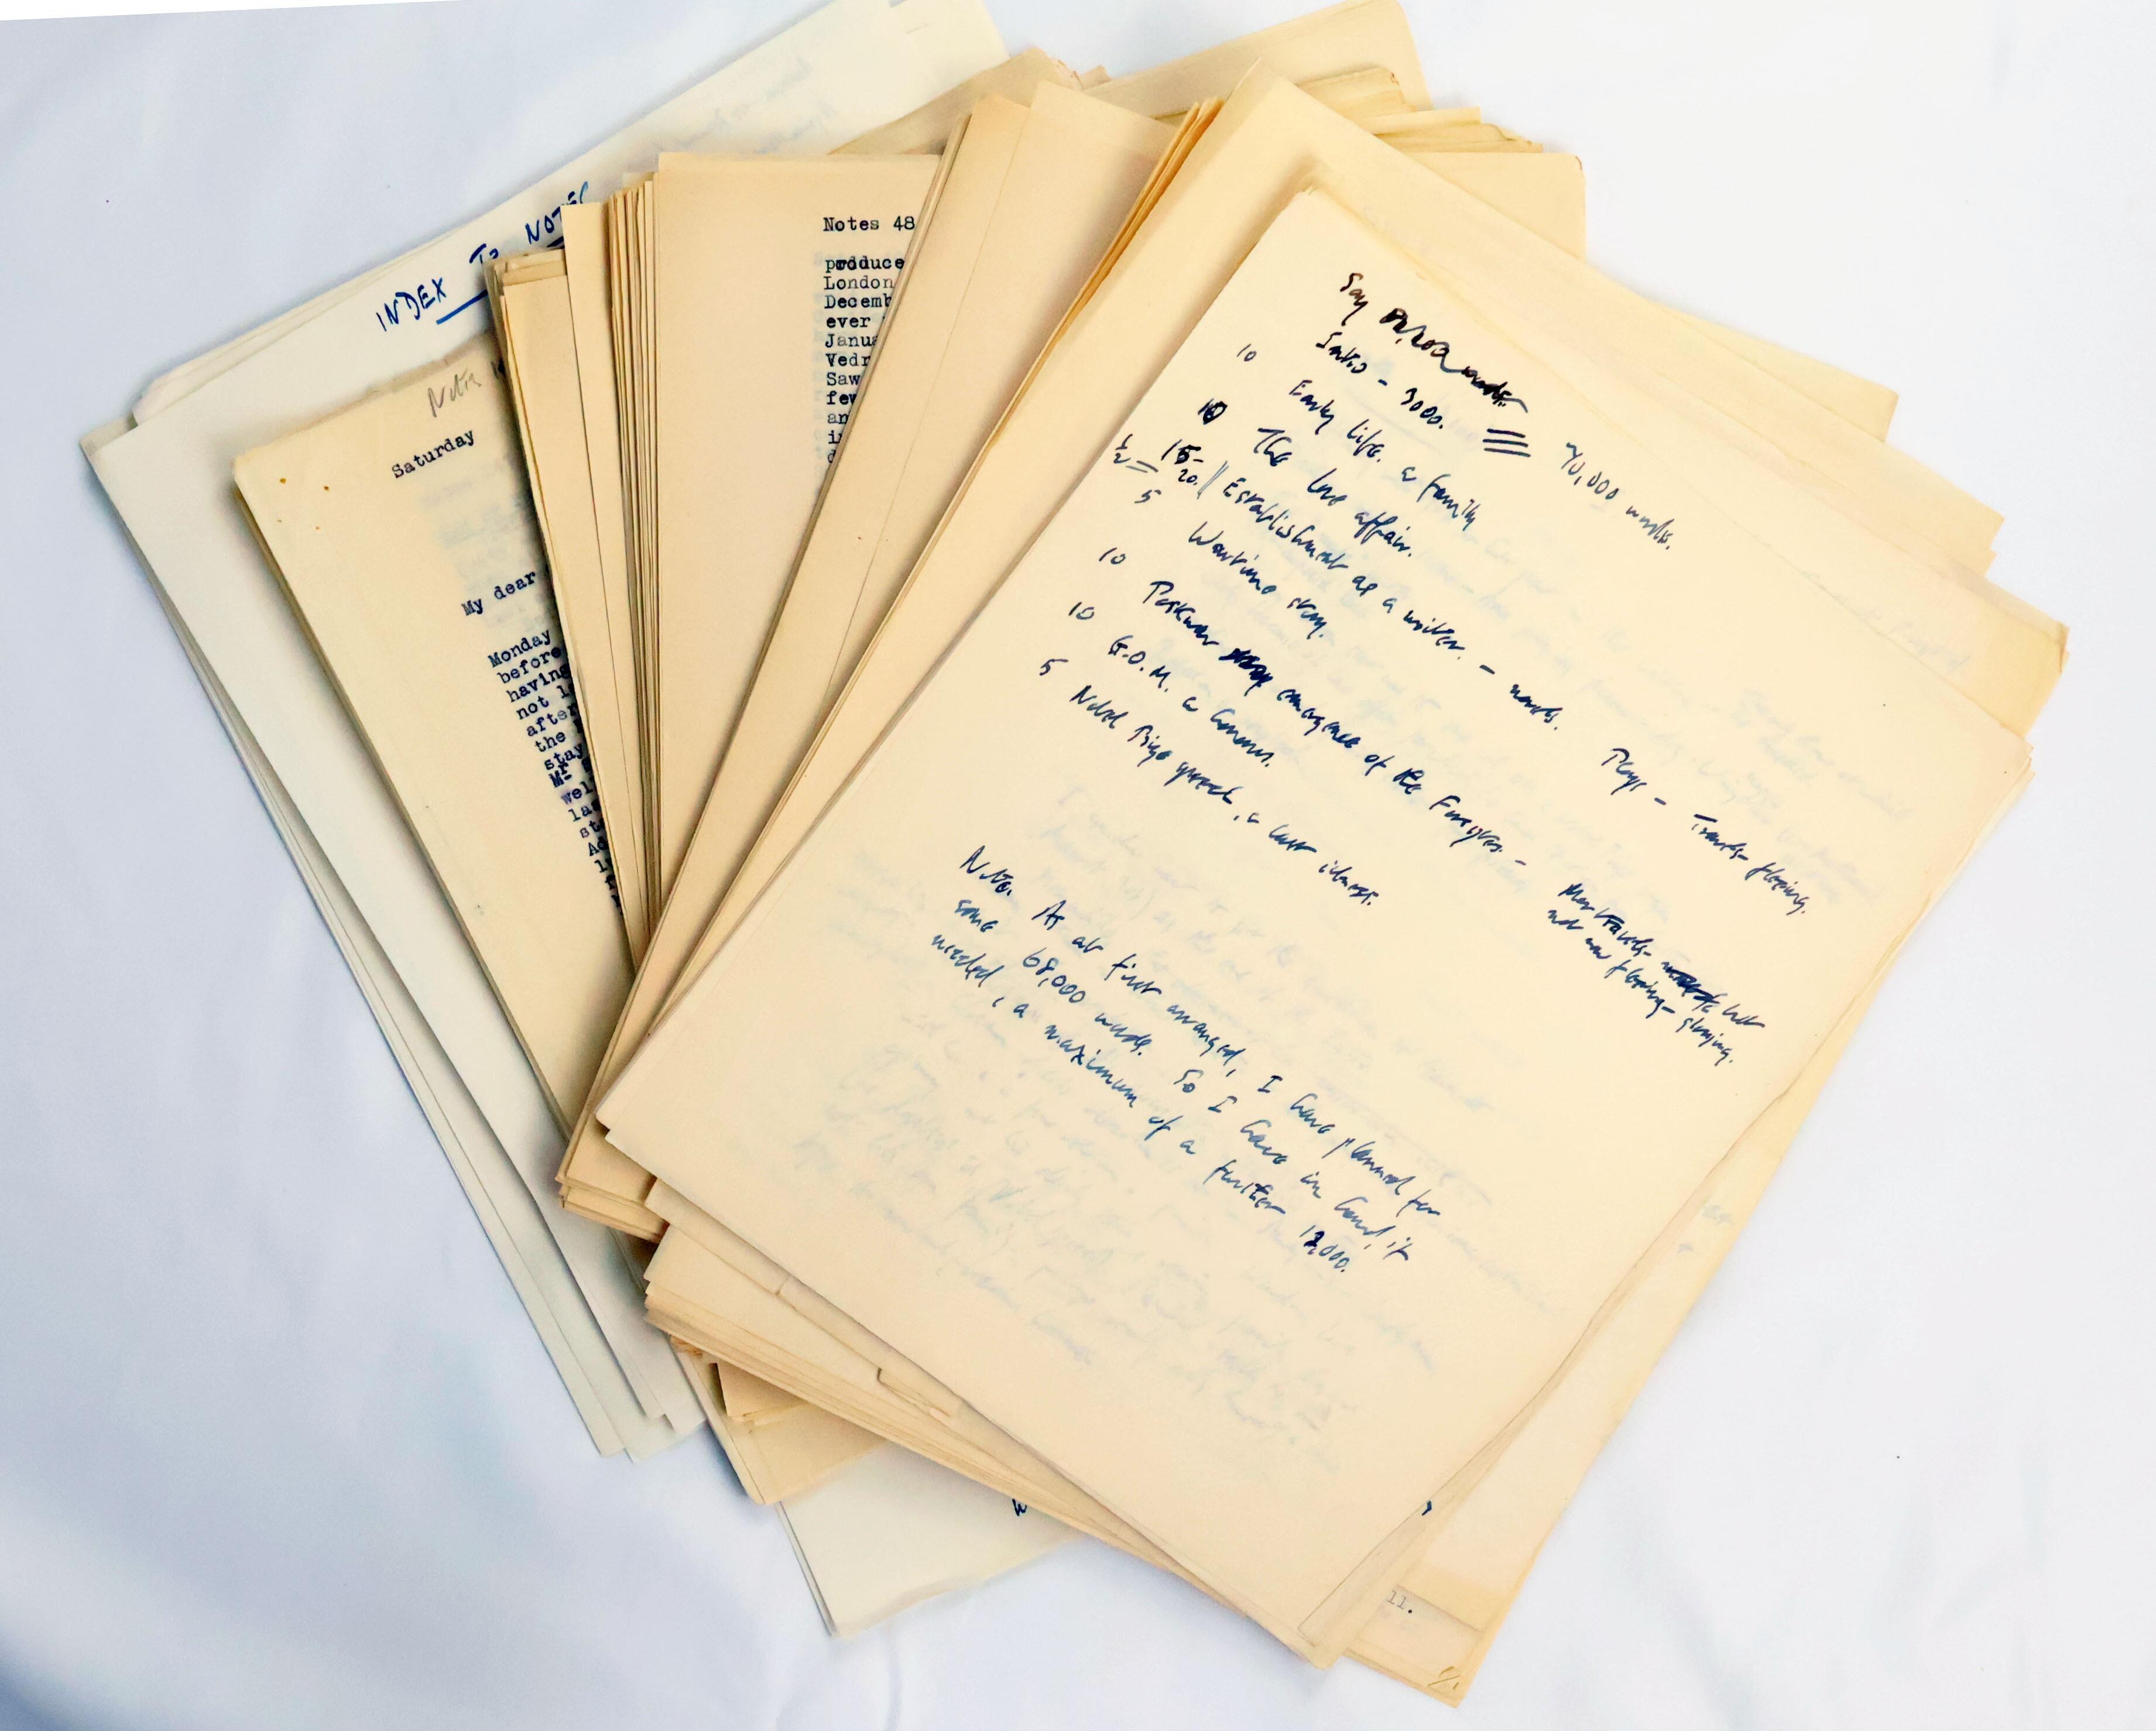 INDEX To NOTES
Notes
Saturday
My dear
Monday
before
having
not l
after
the
stay
Mr
wel
las
st
Ad
l
Notes 48
produce
London
Decemb
ever
Janua
Vedr
Saw
few
an
i
d
Say
Intro - 3000. 70,000 words.
10 Early life. & family
10 The love affair.
1/2 = 15-20. || Establishment as a writer. - novels. Plays - Travels -
5 Wartime story.
10 Postwar emergence of the Forsytes. - More travels - but
not now fleeing - 
10 G.O.M. & honours.
5 Nobel Prize speech, & last illness.
N.B. As at first arranged, I have planned for
some 68,000 words. So I have in hand, if
needed, a maximum of a further 12,000.
ll.